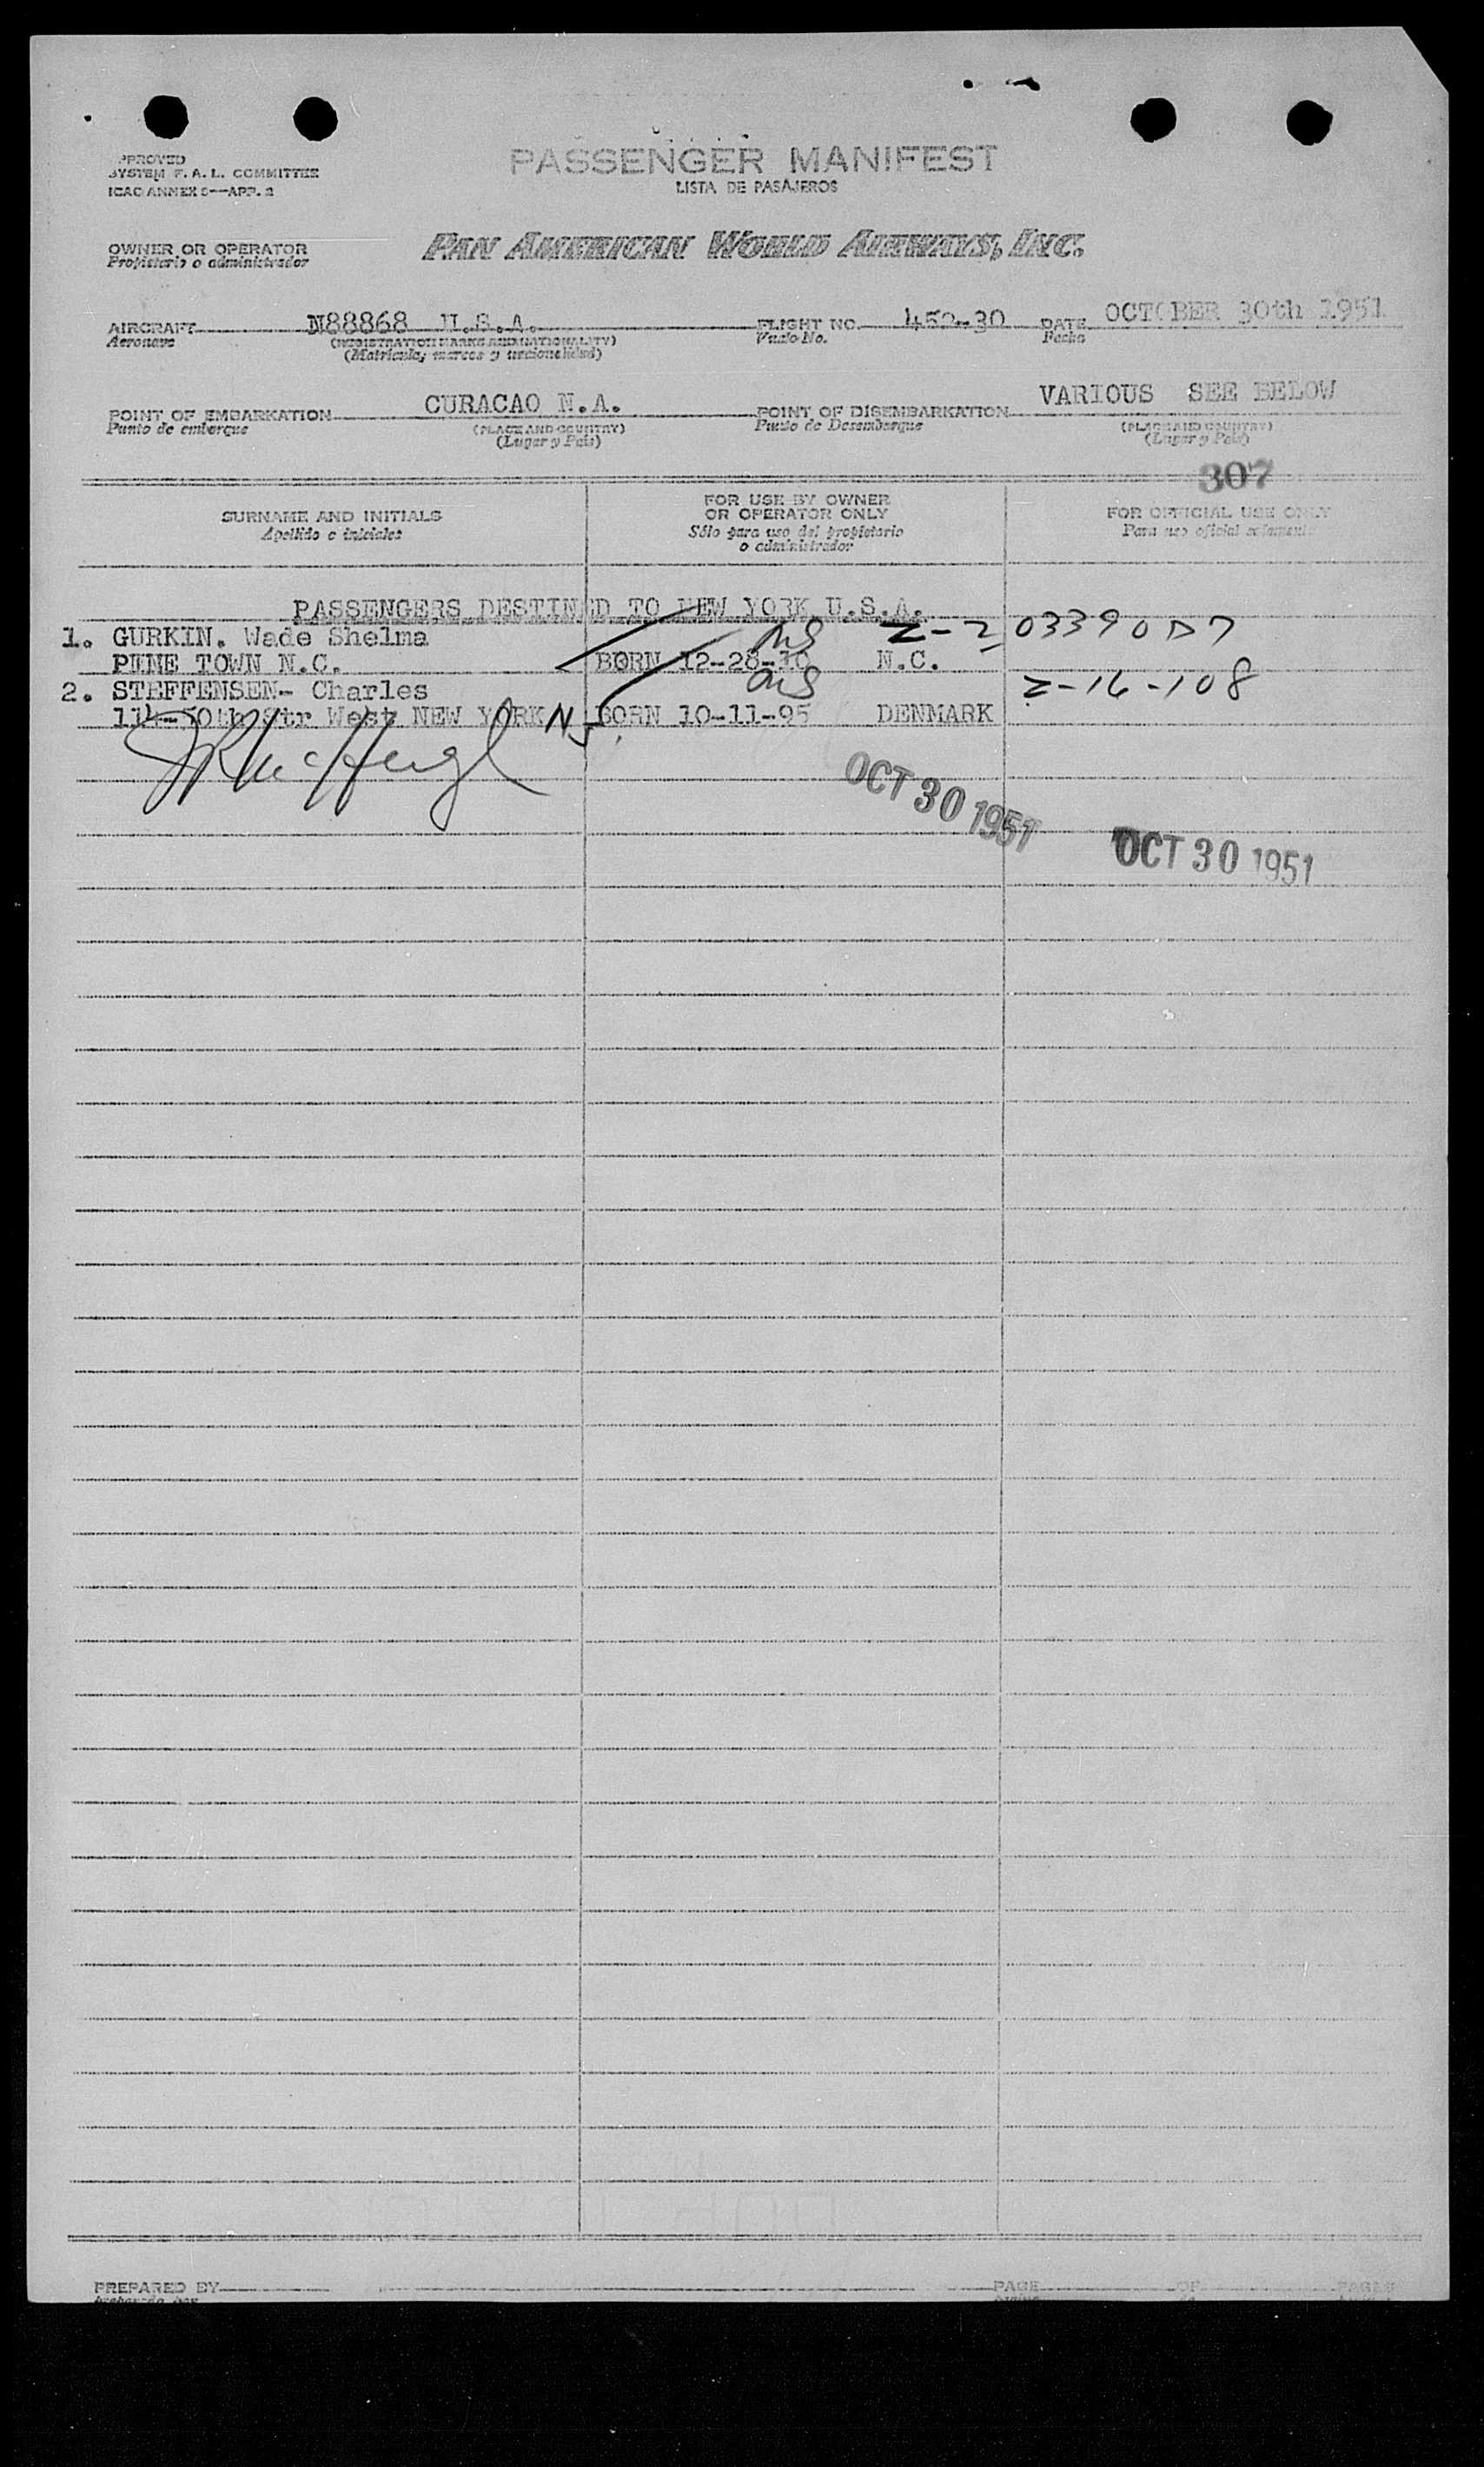 PASSENGER MANIFEST
LISTA DE PASAJEROS
SYSTEM F. A. L. COMMITTEE
ICAO ANNEX 9—APP. 2
OWNER OR OPERATOR
Propietario o administrador
PAN AMERICAN WORLD AIRWAYS, INC.
AIRCRAFT N88868 U.S.A. FLIGHT NO. 452-30 DATE OCTOBER 30th 1951
Aeronave (REGISTRATION MARKS AND NATIONALITY) Vuelo No. Fecha
(Matrícula, marcas y nacionalidad)
POINT OF EMBARKATION CURACAO N.A. POINT OF DISEMBARKATION VARIOUS SEE BELOW
Punto de embarque (PLACE AND COUNTRY) Punto de Desembarque (PLACE AND COUNTRY)
(Lugar y País) (Lugar y País)
307
SURNAME AND INITIALS FOR USE BY OWNER OR OPERATOR ONLY FOR OFFICIAL USE ONLY
Apellido e iniciales Sólo para uso del propietario o administrador Para uso oficial solamente
PASSENGERS DESTINED TO NEW YORK U.S.A.
1. GURKIN. Wade Shelma Z-2 03390D7
PINE TOWN N.C. BORN 12-28-10 N.C.
2. STEFFENSEN- Charles Z-16-108
114-50th Str West NEW YORK NJ. BORN 10-11-95 DENMARK
OCT 30 1951
OCT 30 1951
PREPARED BY PAGE OF PAGES